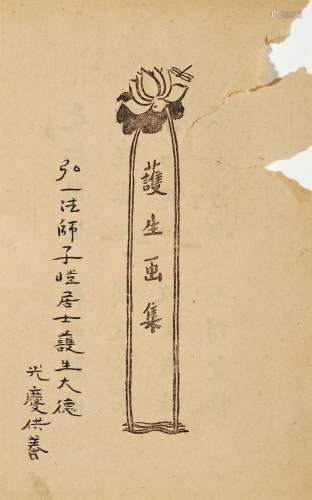 護生画集
弘一法師子愷居士護生大德
光慶供養